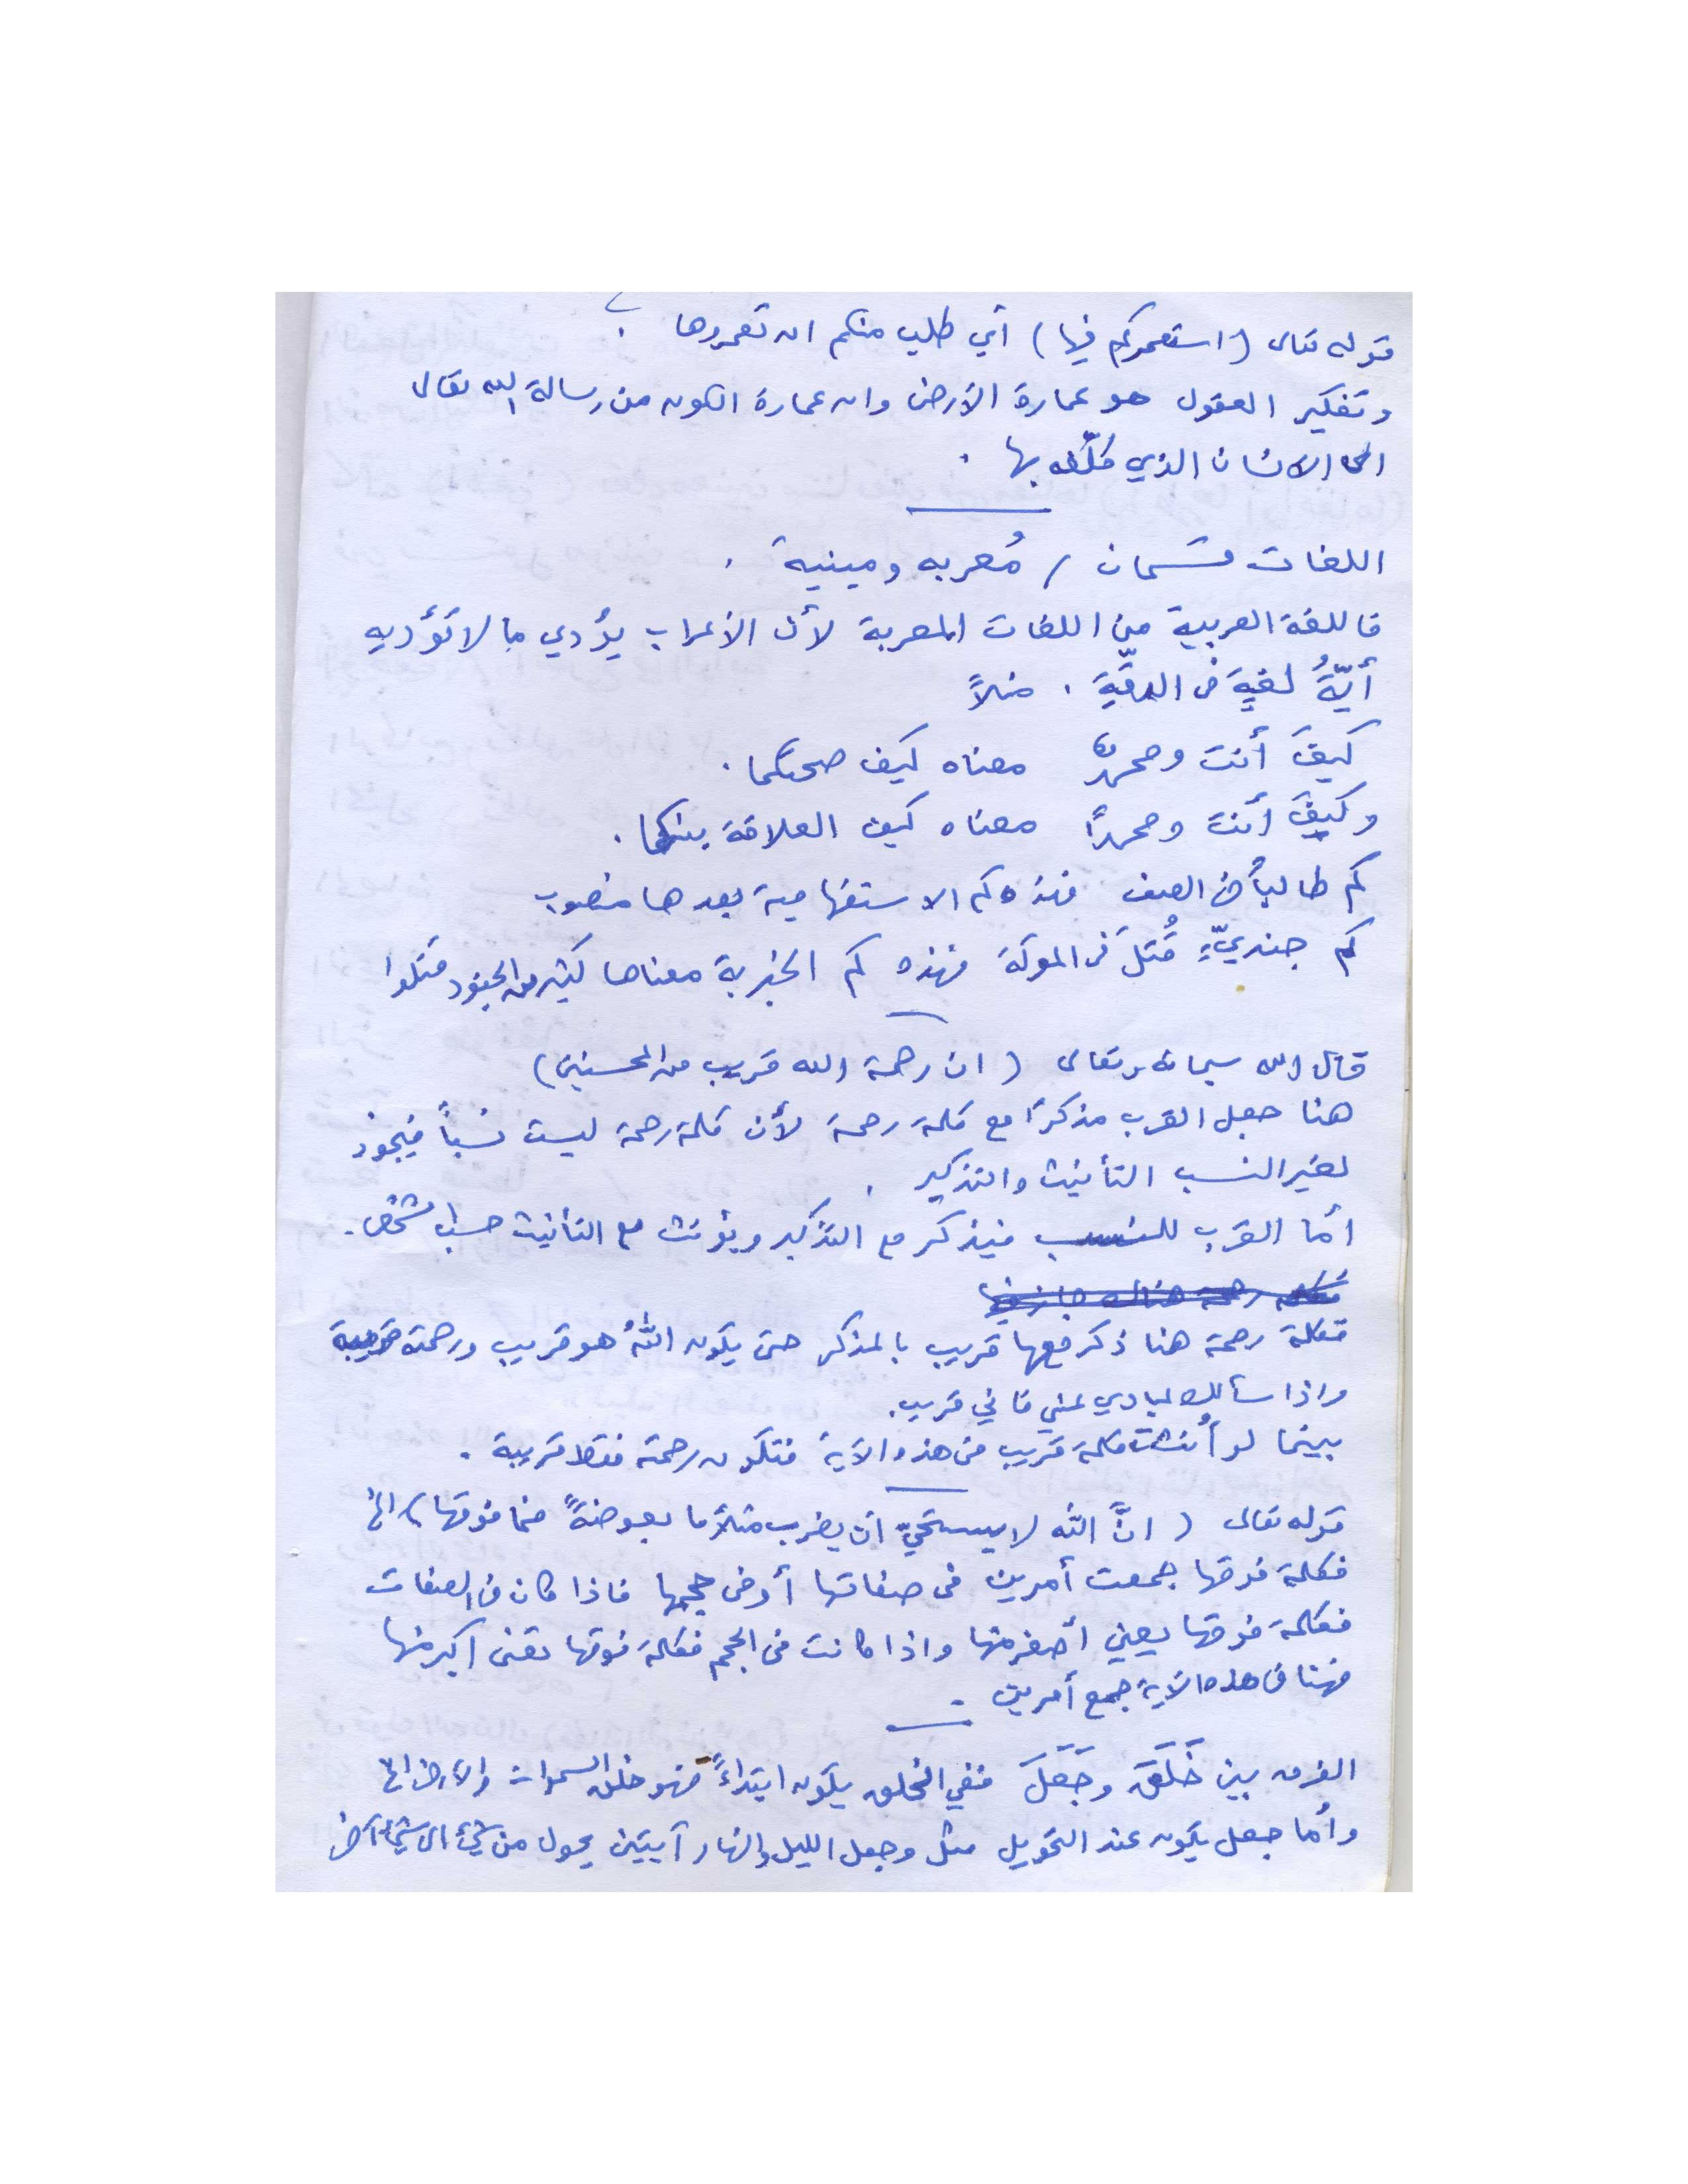 قوله تعالى (استعمركم فيها) أي طلب منكم ان تعمروها .
وتفكير العقول هو عمارة الأرض وان عمارة الكون من رسالة الله تعالى
الى الانسان الذي كلّفه بها .
اللغات قسمان / مُعربه ومبنية .
فاللغة العربية من اللغات المعربة لأن الأعراب يؤدي ما لا تؤديه
أيّةُ لغةٍ في الدقّةِ . مثلاً
كيفَ أنت ومحمدٌ معناه كيف صحتكما .
وكيفَ أنت ومحمداً معناه كيف العلاقة بينكما .
كم طالباً في الصف فهذه كم الاستفهامية بعدها منصوب
كم جنديٍّ قُتلَ في المعركة فهذه كم الخبرية معناها كثير من الجنود قتلوا
قال الله سبحانه وتعالى ( ان رحمة الله قريب من المحسنين )
هنا جعل القرب مذكراً مع كلمة رحمة لأن كلمة رحمة ليست نسباً فيجوز
لغير النسب التأنيث والتذكير .
أما القرب للنسب فيذكر مع التذكير ويؤنث مع التأنيث حسب الشخص .
فكلمة رحمة هنا ذكر معها قريب بالمذكر حتى يكون اللهُ هو قريب ورحمته قريبة
واذا سألك عبادي عني فاني قريب .
بينما لو أُنثت كلمة قريب في هذه الآية فتكون رحمته فقط قريبة .
قوله تعالى ( انَّ الله لا يستحيّ ان يضرب مثلاً ما بعوضةً فما فوقها ) الخ
فكلمة فوقها جمعت أمرين في صفاتها أو في حجمها فاذا كان في الصفات
فكلمة فوقها يعني أصغر منها واذا كانت في الحجم فكلمة فوقها تعني اكبر منها
فهنا في هذه الآية جمع أمرين .
الفرق بين خَلَقَ وجَعَلَ ففي الخلق يكون ابتداءً فهو خلق السموات والارض الخ
وأما جعل يكون عند التحويل مثل وجعل الليل والنهار آيتين يحول من شيء الى شيء آخر